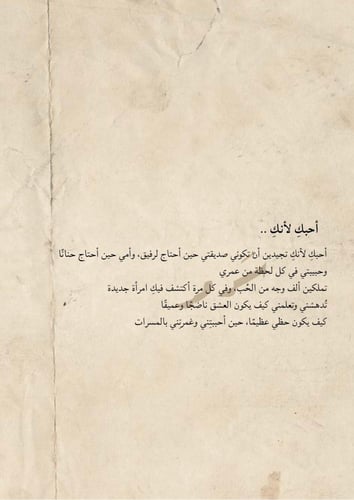 أحبكِ لأنكِ ..
أحبكِ لأنكِ تجيدين أن تكوني صديقتي حين أحتاج لرفيق، وأمي حين أحتاج حنانًا
وحبيبتي في كل لحظة من عمري
تملكين ألف وجه من الحُب، وفي كل مرة أكتشف فيكِ امرأة جديدة
تُدهشني وتعلمني كيف يكون العشق ناضجًا وعميقًا
كيف يكون حظي عظيمًا، حين أحببتِني وغمرتني بالمسرات